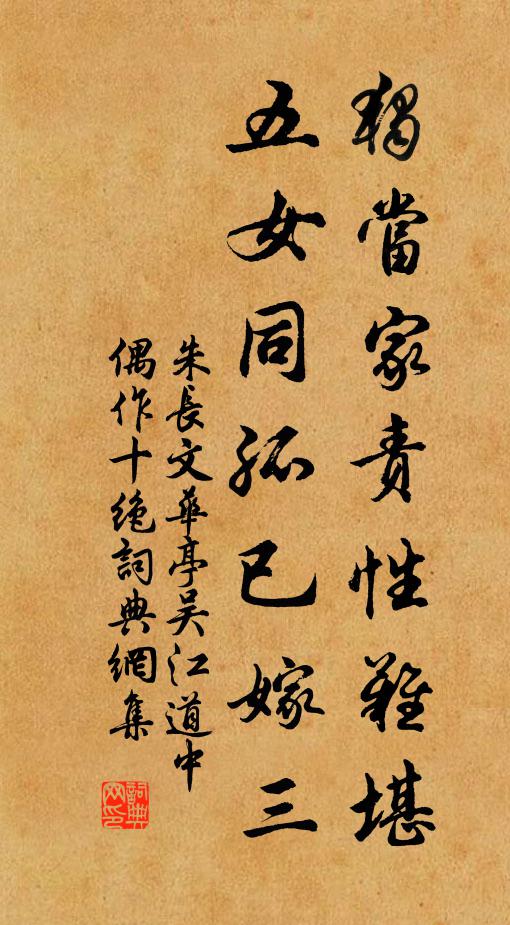 獨當家責性難堪
五女同孤已嫁三
朱長文華亭吳江道中
偶作十絶詞典網集
詞典
网印